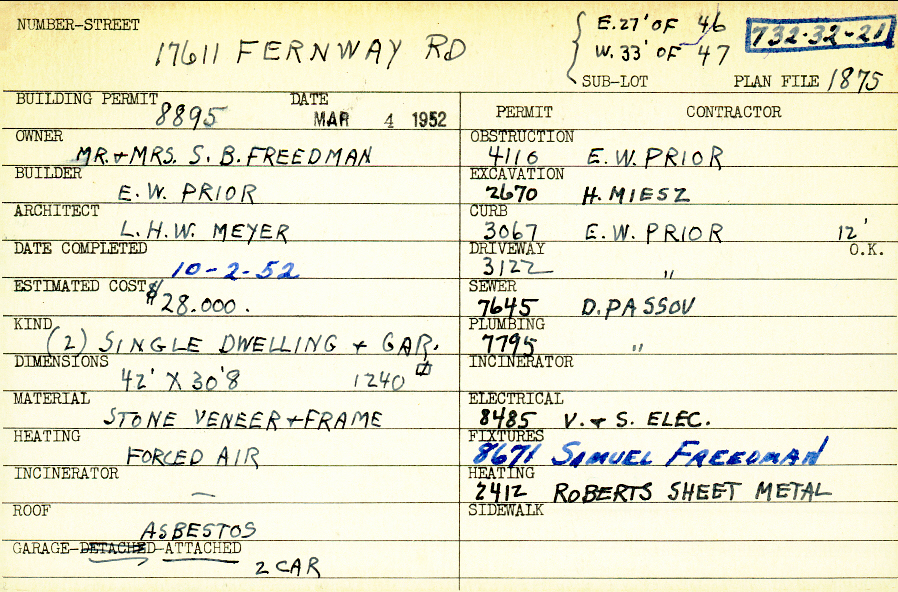 NUMBER-STREET
17611 FERNWAY RD
E. 27' OF 46
W. 33' OF 47
732-32-21
SUB-LOT
PLAN FILE 1875
BUILDING PERMIT 8895 DATE MAR 4 1952
OWNER MR. + MRS. S. B. FREEDMAN
BUILDER E. W. PRIOR
ARCHITECT L. H. W. MEYER
DATE COMPLETED 10-2-52
ESTIMATED COST $28.000.
KIND (2) SINGLE DWELLING + GAR.
DIMENSIONS 42' X 30'8 1240
MATERIAL STONE VENEER + FRAME
HEATING FORCED AIR
INCINERATOR —
ROOF ASBESTOS
GARAGE-DETACHED-ATTACHED 2 CAR
PERMIT CONTRACTOR
OBSTRUCTION 4110 E. W. PRIOR
EXCAVATION 2670 H. MIESZ
CURB 3067 E. W. PRIOR 12'
DRIVEWAY 3122 " O.K.
SEWER 7645 D. PASSOV
PLUMBING 7795 "
INCINERATOR
ELECTRICAL 8485 V. + S. ELEC.
FIXTURES 8671 SAMUEL FREEDMAN
HEATING 2412 ROBERTS SHEET METAL
SIDEWALK